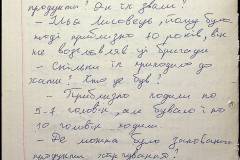 продукти? Як їх звали?
- Илья Лисовець, йому було
тоді приблизно 70 років, він
не возглавляв ці бригади
- Скільки їх приходило до
хати? Хто це був?
- Приблизно ходили по
5-7 чоловік, але бувало і по
10 чоловік ходили.
- Де можна було заховати
продукти харчування?